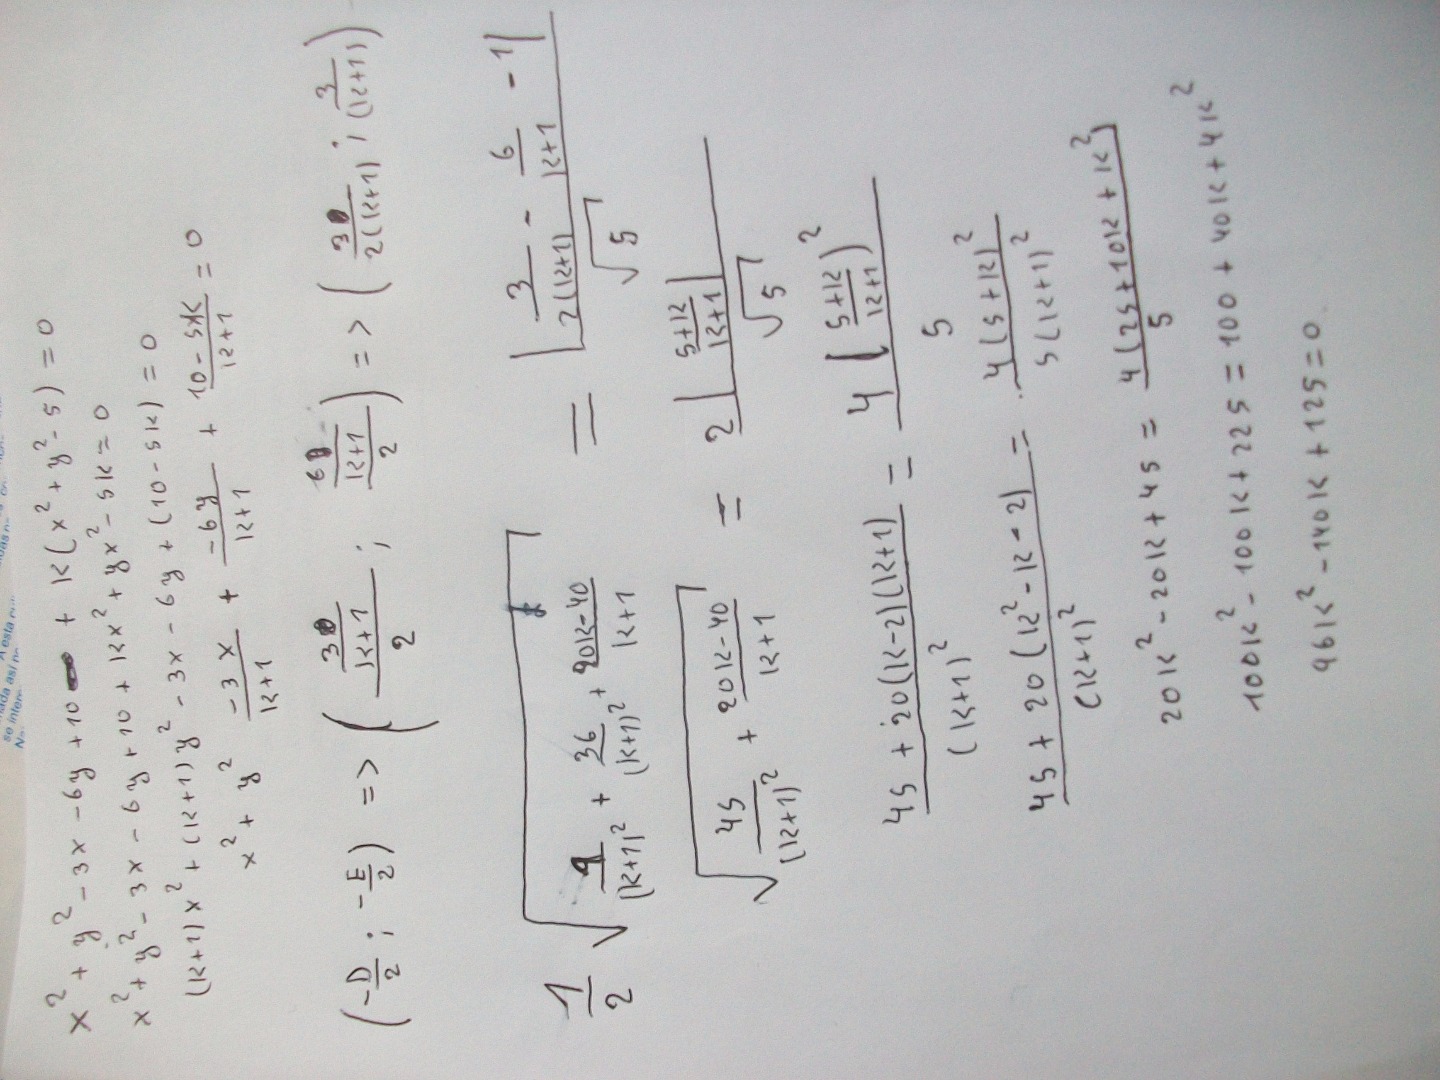 x² + y² - 3x - 6y + 10 + k(x² + y² - 5) = 0
x² + y² - 3x - 6y + 10 + kx² + yx² - 5k = 0
(k+1)x² + (k+1)y² - 3x - 6y + (10 - 5k) = 0
x² + y² \frac{-3x}{k+1} + \frac{-6y}{k+1} + \frac{10-5k}{k+1} = 0
(-\frac{D}{2} ; -\frac{E}{2}) => (\frac{\frac{3}{k+1}}{2} ; \frac{\frac{6}{k+1}}{2}) => (\frac{3}{2(k+1)} ; \frac{3}{(k+1)})
\frac{1}{2} \sqrt{\frac{9}{(k+1)²} + \frac{36}{(k+1)²} + \frac{20k-40}{k+1}} = \frac{|\frac{3}{2(k+1)} - \frac{6}{k+1} - 1|}{\sqrt{5}}
\sqrt{\frac{45}{(k+1)²} + \frac{20k-40}{k+1}} = \frac{2|\frac{5+k}{k+1}|}{\sqrt{5}}
\frac{45 + 20(k-2)(k+1)}{(k+1)²} = \frac{4(\frac{5+k}{k+1})²}{5}
\frac{45 + 20(k² - k - 2)}{(k+1)²} = \frac{4(5+k)²}{5(k+1)²}
20k² - 20k + 45 = \frac{4(25 + 10k + k²)}{5}
100k² - 100k + 225 = 100 + 40k + 4k²
96k² - 140k + 125 = 0